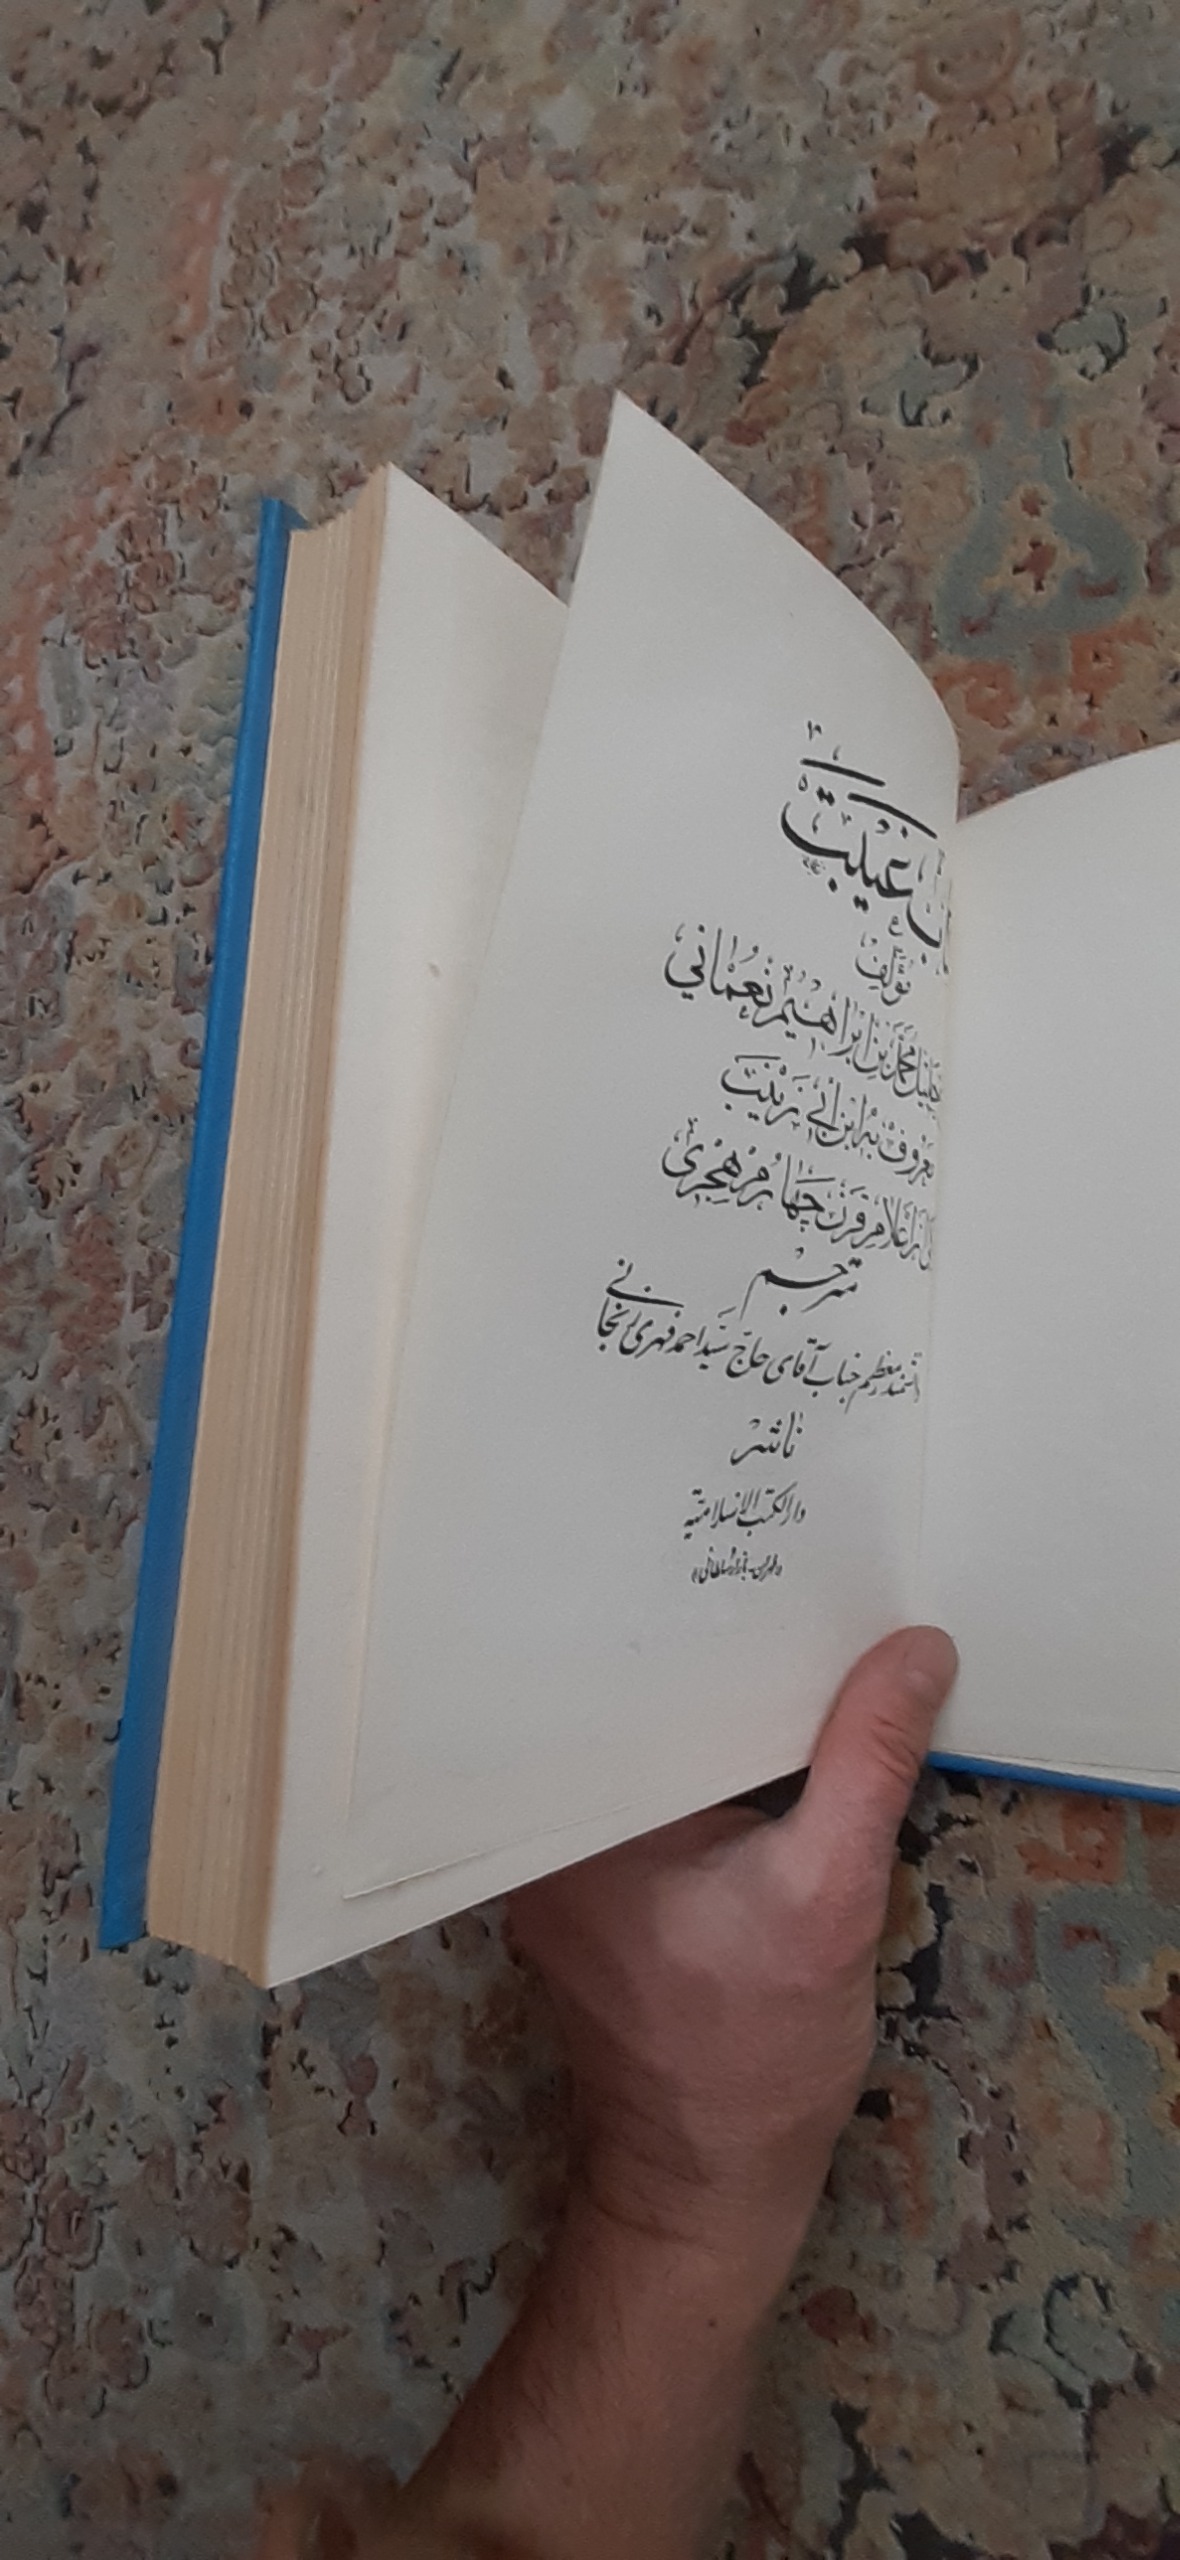 غیبت
تألیف
محمد بن ابراهیم نعمانی
معروف به ابن ابی زینب
از اعلام قرن چهارم هجری
مترجم
معظم جناب آقای حاج سید احمد فهری زنجانی
ناشر
دارالکتب الاسلامیه
«طهران - بازار سلطانی»